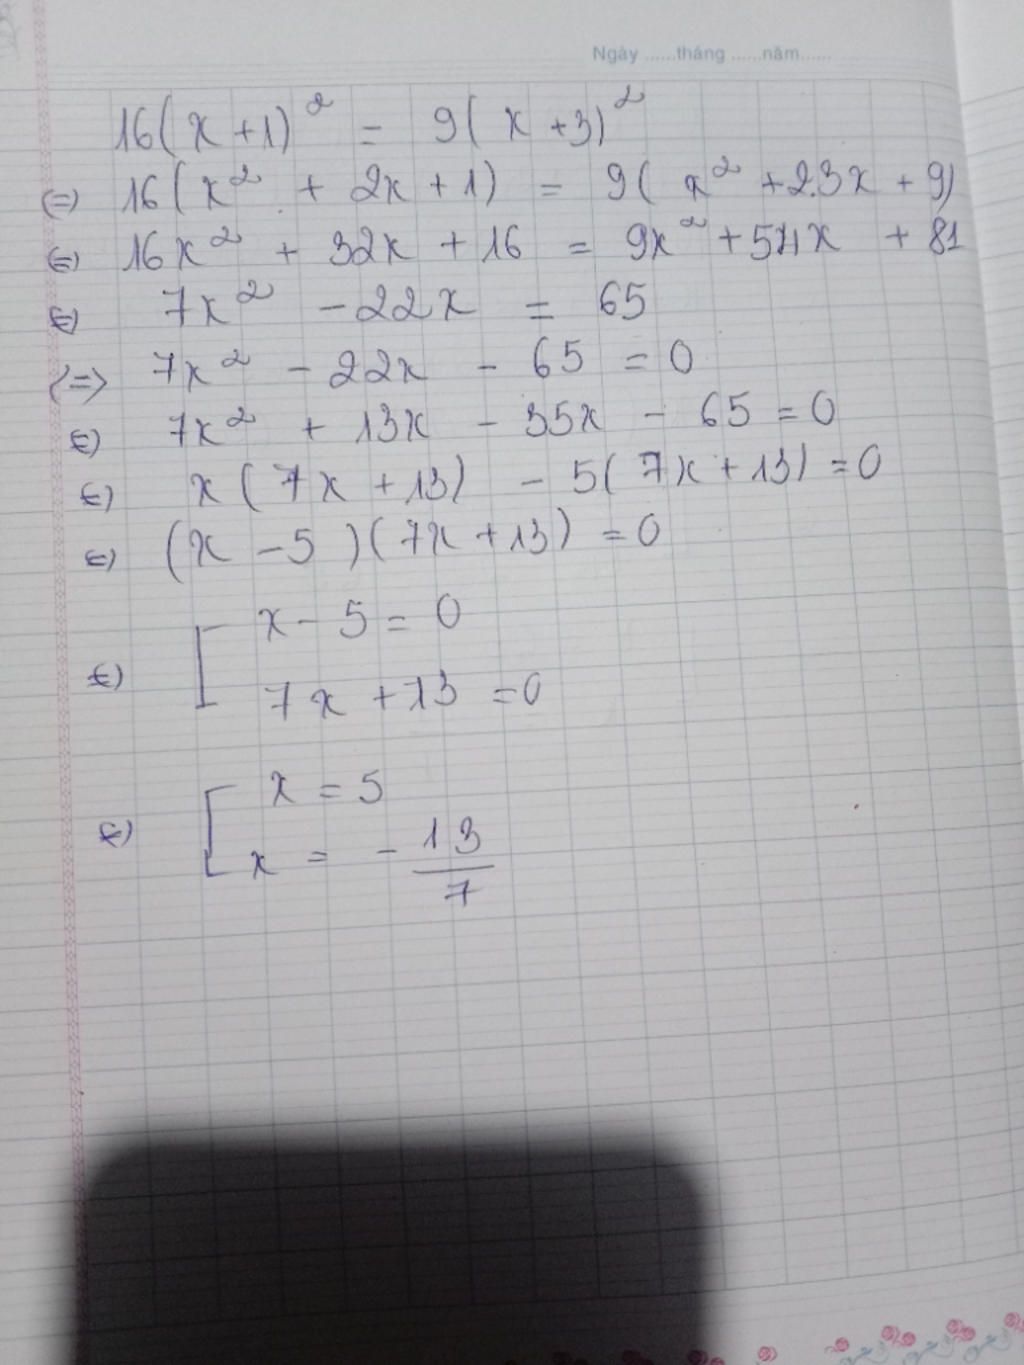 Ngày ......tháng ......năm......
16(x+1)² = 9(x+3)²
(=) 16(x² + 2x + 1) = 9(x² + 2.3x + 9)
(=) 16x² + 32x + 16 = 9x² + 54x + 81
(=) 7x² - 22x = 65
<=> 7x² - 22x - 65 = 0
(=) 7x² + 13x - 35x - 65 = 0
(=) x(7x + 13) - 5(7x + 13) = 0
(=) (x - 5)(7x + 13) = 0
(=) [ x - 5 = 0
7x + 13 = 0
(=) [ x = 5
x = - 13/7